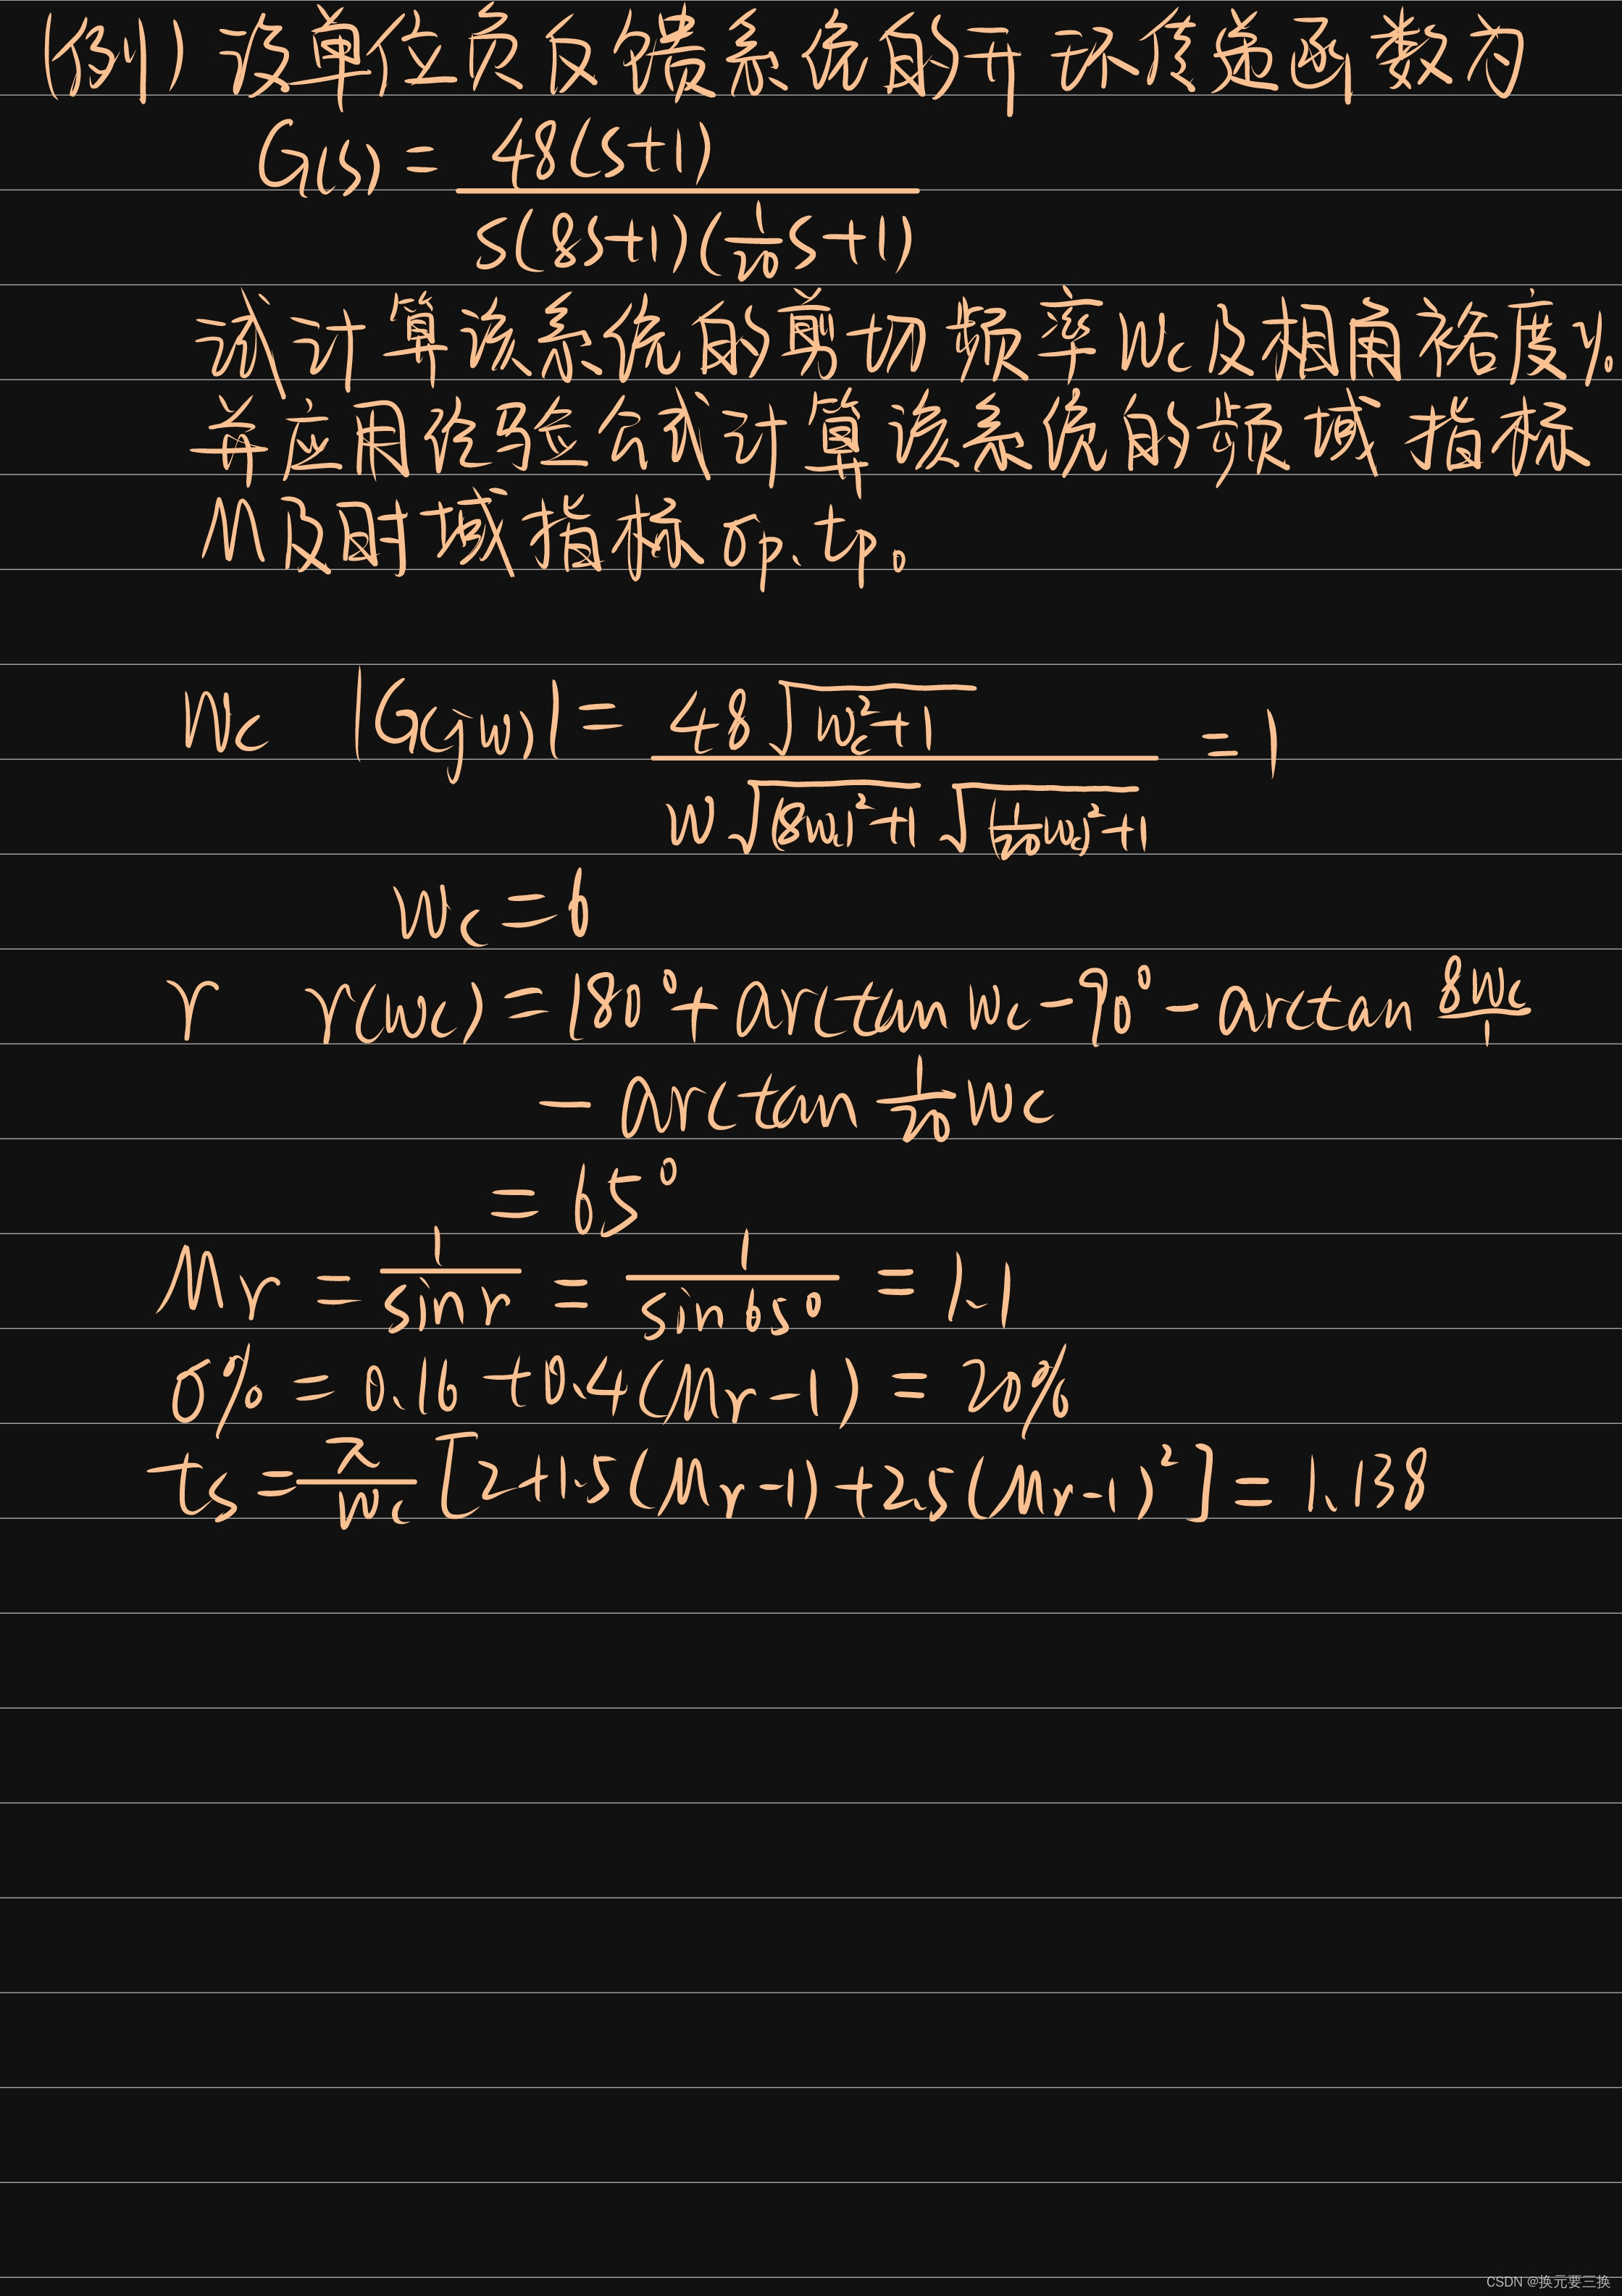 (例) 设单位负反馈系统的开环传递函数为
G(s) = 48(s+1) / s(8s+1)(1/20 s+1)
试计算该系统的剪切频率Wc及相角裕度γ。
并应用经验公式计算该系统的频域指标
M及时域指标σp、tp。
Wc |G(jw)| = 48√(Wc²+1) / W√((8Wc)²+1) √((1/20 Wc)²+1) = 1
Wc = 6
r r(wc) = 180° + arctan Wc - 90° - arctan 8Wc/1
- arctan 1/20 Wc
= 65°
Mr = 1/sin r = 1/sin 65° = 1.1
σ% = 0.16 + 0.4(Mr-1) = 20%
ts = π/Wc [2+1.5(Mr-1)+2.5(Mr-1)²] = 1.138
CSDN @换元要三换